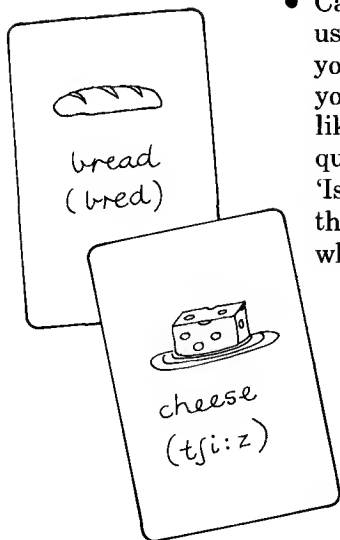 bread
(bred)
cheese
(tʃi:z)
• Ca
us
yo
yo
lik
qu
'Is
th
wh